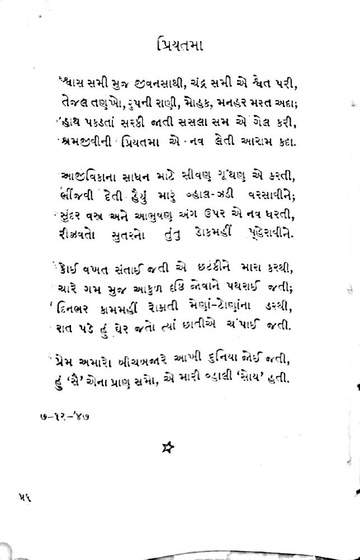 પ્રિયતમા
શ્વાસ સમી મુજ જીવનસાથી, ચંદ્ર સમી એ શ્વેત પરી,
તેજલ તણખો, રુપની રાણી, મોહક, મનહર મસ્ત અદા;
હાથ પકડતાં સરકી જાતી સસલા સમ એ ગેલ કરી,
શ્રમજીવીની પ્રિયતમા એ નવ લેતી આરામ કદા.
આજીવિકાના સાધન માટે સીવણ ગૂંથણ એ કરતી,
ભીંજવી દેતી હૈયું મારું વ્હાલ-ઝડી વરસાવીને;
સુંદર વસ્ત્ર અને આભુષણ અંગ ઉપર એ નવ ધરતી,
રીઝવતો સુતરનો તંતુ ડોકમહીં પ્હેરાવીને.
કોઈ વખત સંતાઈ જતી એ છટકીને મારા કરથી,
ચારે ગમ મુજ આકુળ દૃષ્ટિ જોવાને પથરાઈ જતી;
દિનભર કામમહીં રોકાતી મેણાં-ટોણાંના ડરથી,
રાત પડે હું ઘેર જતો ત્યાં છાતીએ ચંપાઈ જતી.
પ્રેમ અમારો બીચબજારે આખી દુનિયા જોઈ જતી,
હું ‘સૈ’ એના પ્રાણ સમો, એ મારી વ્હાલી ‘સોય’ હતી.
૭-૧૨-’૪૭
૫૬